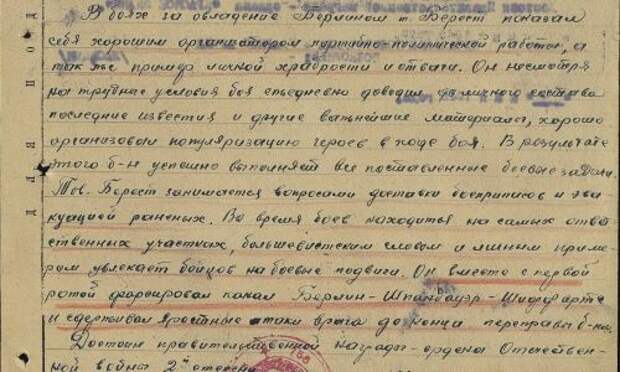 В боях за овладение Берлином т. Берест показал
себя хорошим организатором партийно-политической работы, а
так же пример личной храбрости и отваги. Он несмотря
на трудные условия боя ежедневно доводил до личного состава
последние известия и другие важнейшие материалы, хорошо
организовал популяризацию героев в ходе боя. В результате
этого б-н успешно выполняет все поставленные боевые задачи.
Тов. Берест занимается вопросами доставки боеприпасов и эва-
куацией раненых. Во время боев находиться на самых ответ
ственных участках, большевистским словом и личным приме-
ром увлекает бойцов на боевые подвиги. Он вместе с первой
ротой форсировал канал Берлин-Шпандауэр-Шиффартс
и сдерживал яростные атаки врага до конца переправы б-на.
Достоин правительственной награды-ордена Отечествен-
ной войны 2й степени